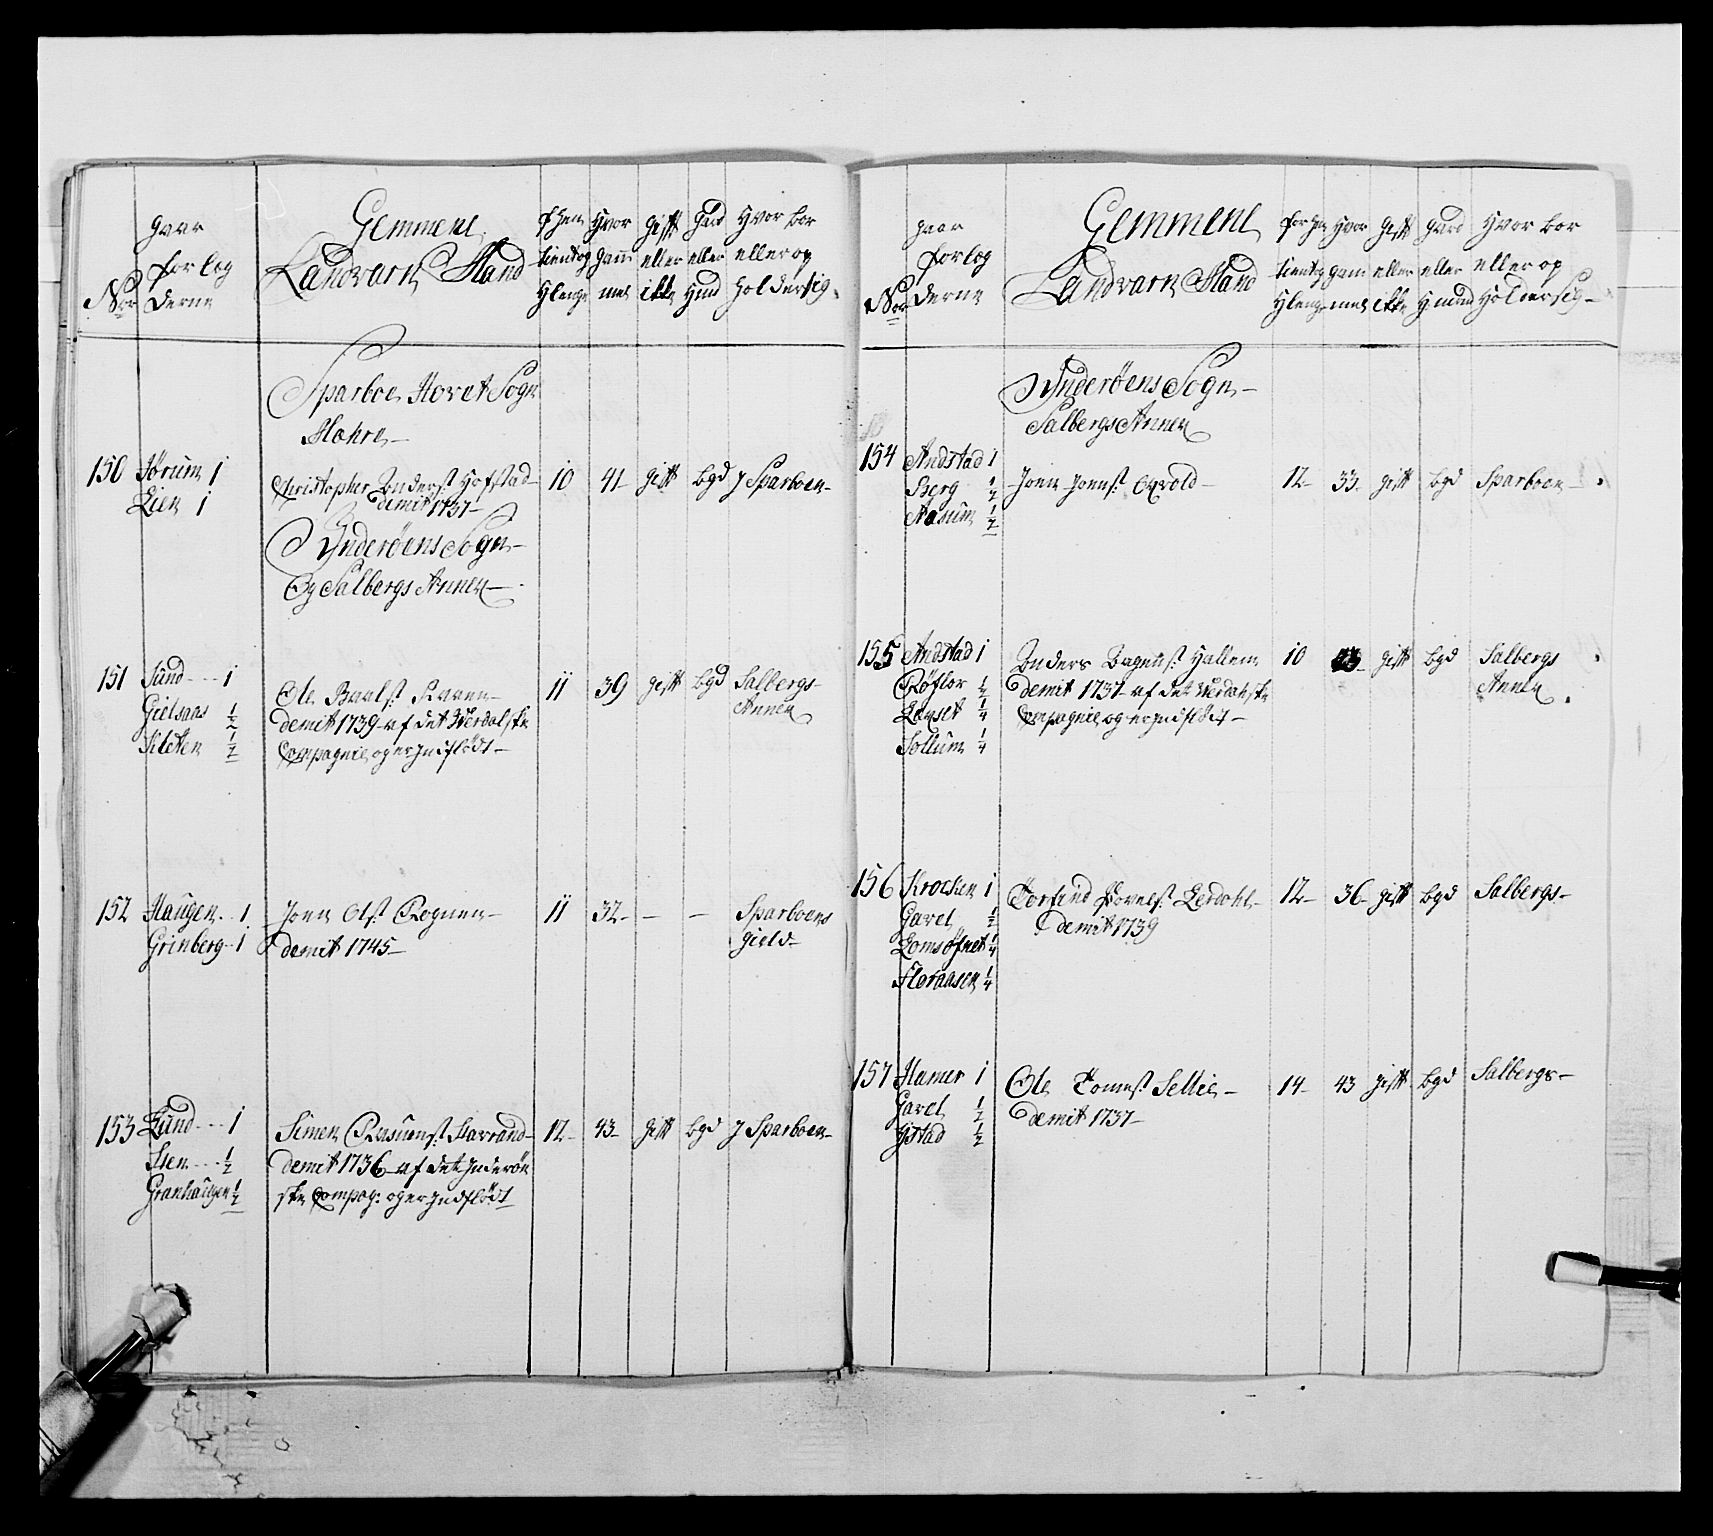 Nor
gaar
forleg
derne
Gemmene
Landvarn Stand
f hen
tient og
hlenge
Hvor
gam
mel
gift
eller
ikke
gaard
eller
hus
Hvor bor
eller op
holder sig
Sparboe Hovet Sogn
Mahre
150 Jørum 1
Lien 1
Christopher Anderss: Hofstad
demit 1737
10 41 gift bgd J Sparboen
Ynderøens Sogn
Og Salbergs Annex
151 Sund 1
Gielsaas ½
Kleten ½
Ole
demit 1739 af det Werdalske
Compagnie og er Indflødt
11 39 gift bgd Salbergs
Annex
152 Haugen 1
Grinberg 1
Jonn Olss: Rognen
demit 1745
11 32 - - Sparboens
gield
153 Lund 1
Sten ½
Granhaugen ½
Simen Rasmuss: Starrand
demit 1736 af det Inderøn
ske Compag: og er Indflødt
12 43 gift bgd J Sparboen
Nor
gaar
forleg
derne
Gemmene
Landvarn Stand
for hen
tient og
hlenge
Hvor
gam
mel
gift
eller
ikke
gaard
eller
Hvor bor
eller op
Holder sig
Ynderøens Sogn
Salbergs Annex
154 Andstad 1
Berg ½
Aasum ½
Jonn Jonns: Qvold
12 33 gift bgd Sparboen
155 Andstad 1
Røflor ½
Lånset ¼
Sollum ¼
Anders Hallem
demit 1737 af det Werdahlske
Compagnie og er Indflødt
10 gift bgd Salbergs
Annex
156 Kroeken 1
Gavel ½
Lomsøfnet ¼
Floraasen ¼
Torfind Povels: Lerdahl
demit 1739
12 36 gift bgd Salbergs
157 Hamer 1
Gavel ½
Ystad ½
Ole Tomess: Sellie
demit 1737
14 43 gift bgd Salbergs